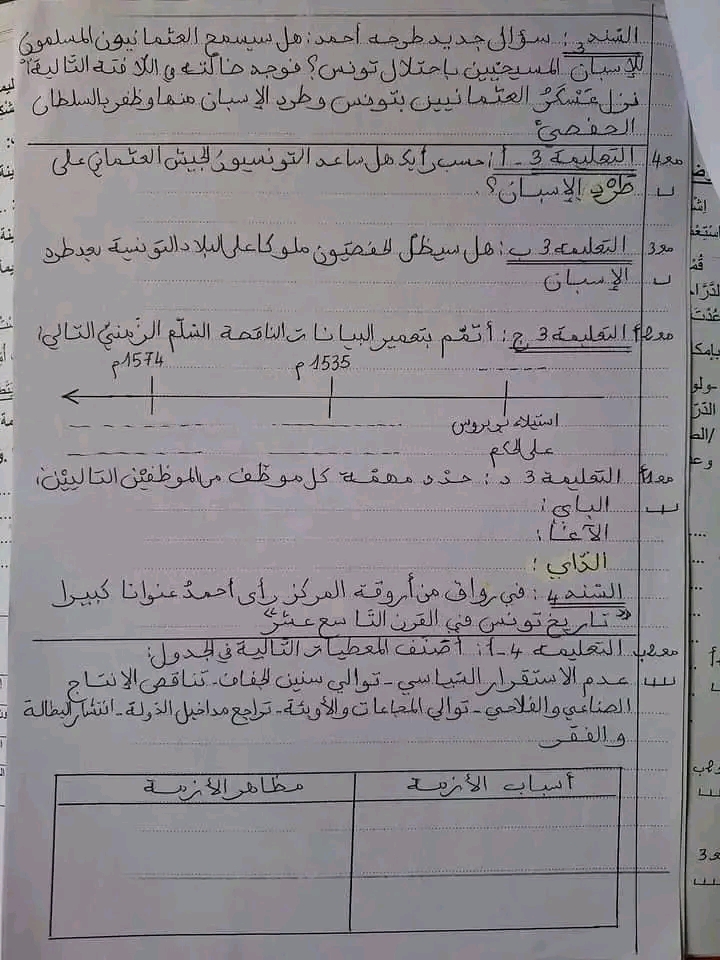 السّند 3: سؤال جديد طرحه أحمد: هل سيسمح العثمانيون المسلمون
للإسبان المسيحيين باحتلال تونس؟ فوجد ضالّته في اللافتة التالية "
نزل عَسْكَرُ العثمانيين بتونس وطرد الإسبان منها وظفر بالسلطان
الحفصيّ"
مع4 التعليمة 3 - أ: حسب رأيك هل ساعد التونسيون الجيش العثماني على
طرْد الإسبان؟
مع3 التعليمة 3 ب: هل سيظلّ الحفصيّون ملوكا على البلاد التونسية بعد طرد
الإسبان
مع2أ التعليمة 3 ج: أتمّم بتعمير البيانات الناقصة السّلّم الزّمنيّ التالي:
1574م 1535م
استيلاء بربروس
على الحكم
مع1أ التعليمة 3 د: حدّد مهمّة كل موظّف من الموظّفيْن التالييْن:
الباي:
الآغا:
الدّاي:
السّند 4: في رواق من أروقة المركز رأى أحمدُ عنوانا كبيرا
"تاريخ تونس في القرن التاسع عشر"
مع2ب التعليمة 4-أ: أصنّف المعطيات التالية في الجدول:
عدم الاستقرار السّياسي - توالي سنين الجفاف - تناقص الإنتاج
الصناعي والفلاحي - توالي المجاعات والأوبئة - تراجع مداخيل الدّولة - انتشار البطالة
والفقر
أسباب الأزمة مظاهر الأزمة